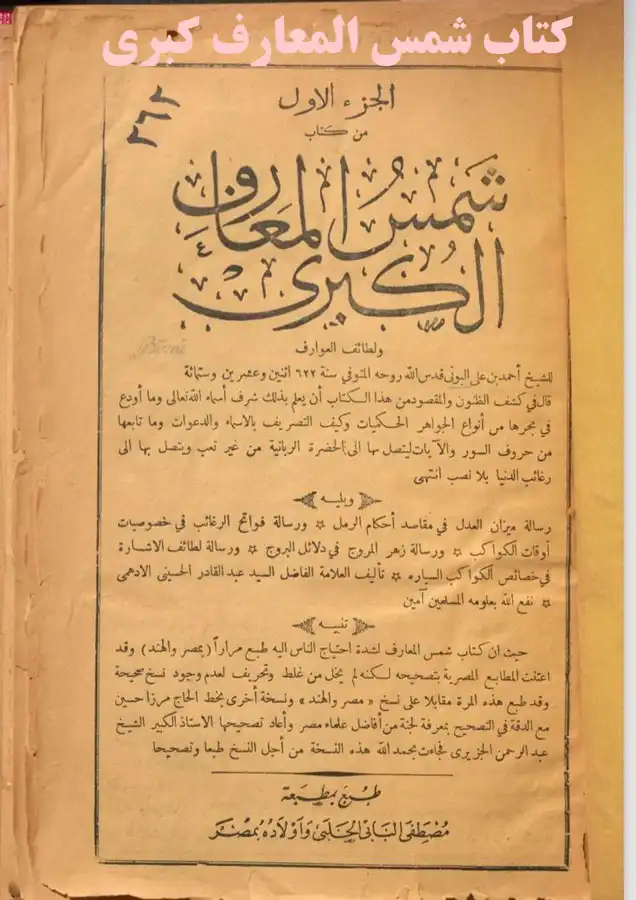 كتاب شمس المعارف كبرى
٢٦٢
الجزء الاول
من كتاب
شمس المعارف
الكبرى
ولطائف العوارف
للشيخ أحمد بن على البونى قدس الله روحه المتوفي سنة ٦٢٢ اثنين وعشرين وستمائة
قال في كشف الظنون والمقصود من هذا الكتاب أن يعلم بذلك شرف أسماء الله تعالى وما أودع
في بحرها من أنواع الجواهر الحكميات وكيف التصريف بالاسماء والدعوات وما تابعها
من حروف السور والآيات ليتصل بها الى الحضرة الربانية من غير تعب ويتصل بها الى
رغائب الدنيا بلا نصب انتهى
ويليه
رسالة ميزان العدل في مقاصد أحكام الرمل * ورسالة فواتح الرغائب في خصوصيات
أوقات الكواكب * ورسالة زهر المروج في دلائل البروج * ورسالة لطائف الاشارة
في خصائص الكواكب السياره * تأليف العلامة الفاضل السيد عبد القادر الحسيني الادهمى
* نفع الله بعلومه المسلمين آمين
تنبيه
حيث ان كتاب شمس المعارف لشدة احتياج الناس اليه طبع مراراً (بمصر والهند) وقد
اعتنت المطابع المصرية بتصحيحه لكنه لم يخل من غلط وتحريف لعدم وجود نسخ صحيحة
وقد طبع هذه المرة مقابلا على نسخ « مصر والهند » ونسخة أخرى بخط الحاج مرزا حسين
مع الدقة في التصحيح بمعرفة لجنة من أفاضل علماء مصر وأعاد تصحيحها الاستاذ الكبير الشيخ
عبد الرحمن الجزيرى فجاءت بحمد الله هذه النسخة من أجل النسخ طبعا وتصحيحا
طبع بمطبعة
مصطفى البابى الحلبى وأولاده بمصر